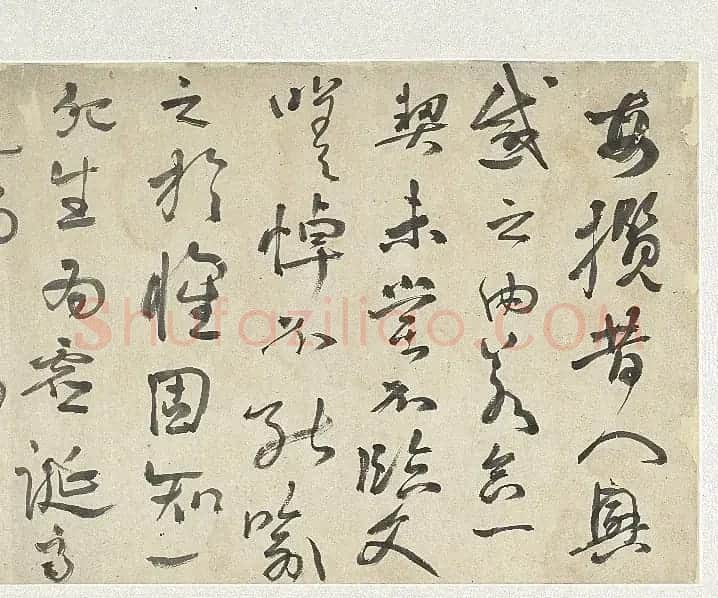 每攬昔人興
感之由若合一
契未嘗不臨文
嗟悼不能喻
之於懷固知一
死生為虛誕齊
Shufaziliao.COM